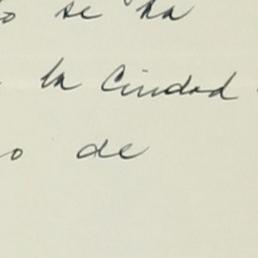 se ha
la Ciudad
de